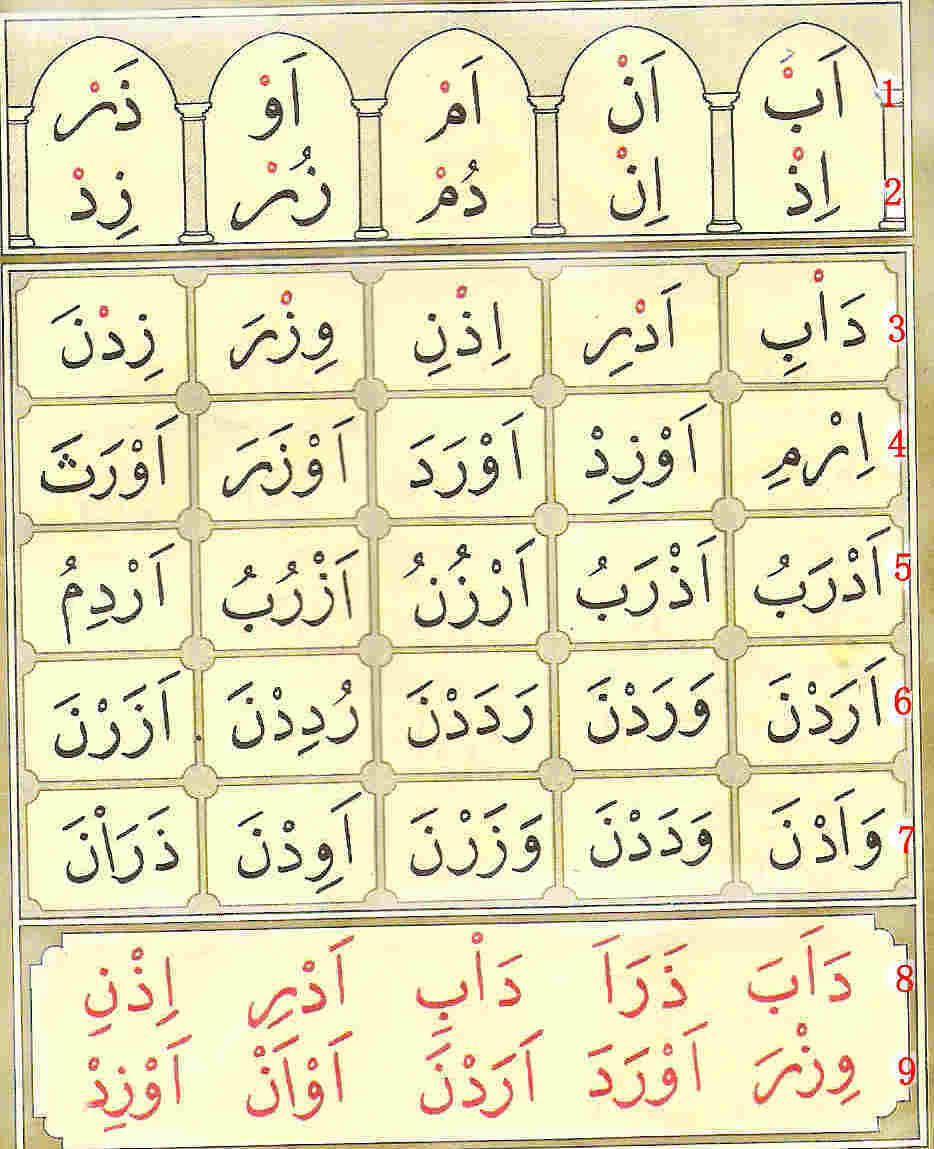 اَبْ اَنْ اَمْ اَوْ ذَرْ 1
اِذْ اِنْ دُمْ زُرْ زِدْ 2
دَاْبِ اَدْرِ اِذْنِ وِزْرَ زِدْنَ 3
اِرْمِ اَوْزِدْ اَوْرَدَ اَوْزَرَ اَوْرَثَ 4
اَدْرَبُ اَذْرَبُ اَرْزُنُ اَزْرُبُ اَرْدِمُ 5
اَرَدْنَ وَرَدْنَ رَدَدْنَ رُدِدْنَ اَزَرْنَ 6
وَاَدْنَ وَدَدْنَ وَزَرْنَ اَوِدْنَ ذَرَاْنَ 7
دَاَبَ ذَرَاَ دَاْبِ اَدْرِ اِذْنِ 8
وِزْرَ اَوْرَدَ اَرَدْنَ اَوْاَنْ اَوْزِدْ 9